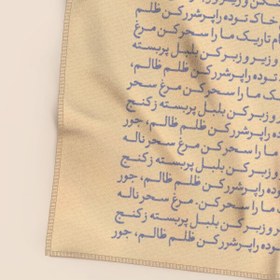 خاک توده را پرشرر کن ظلم
تاریک ما را سحر کن مرغ
و زیر و زبر کن بلبل پربسته
توده را پرشرر کن ظلم ظالم،
تاریک ما را سحر کن مرغ سحر
و زبر کن بلبل پربسته ز کنج
را پرشرر کن ظلم ظالم، جور
ما را سحر کن مرغ سحر ناله
کن بلبل پربسته ز کنج
را پرشرر کن ظلم ظالم، جور
ما را سحر کن. مرغ سحر ناله
و زبر کن بلبل پربسته ز کنج
را پرشرر کن ظلم ظالم، جور